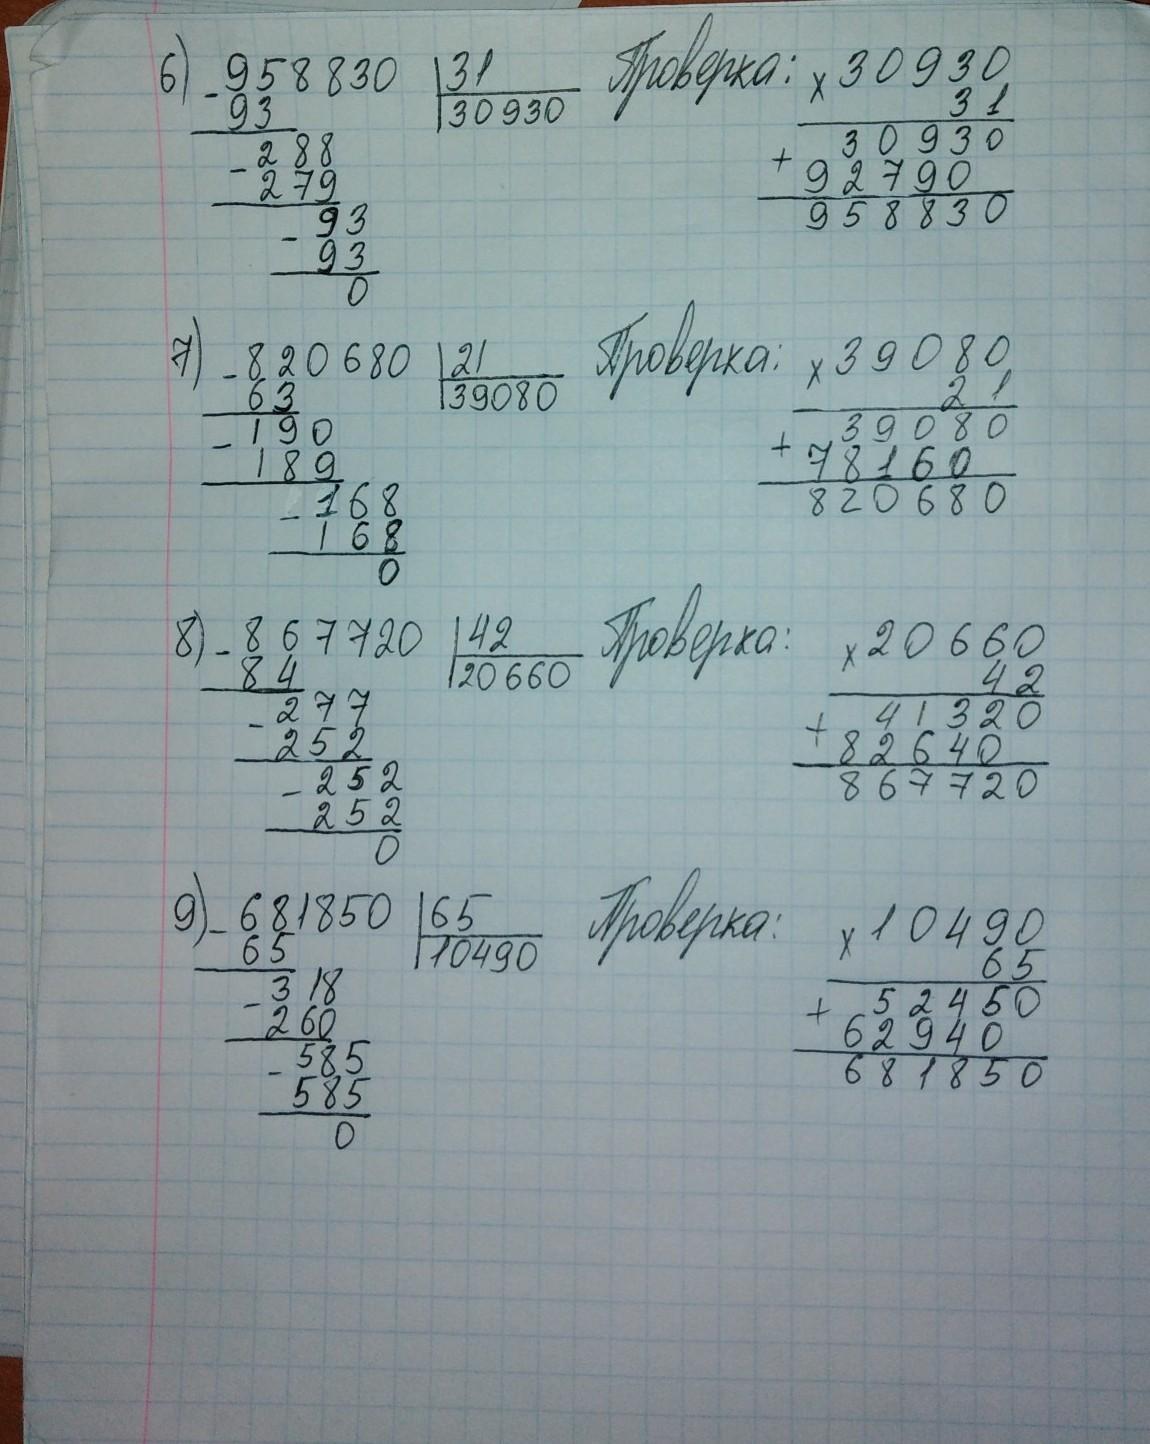 6) - 958830 | 31 Проверка: × 30930
93 | 30930 31
- 288 + 30930
279 92790
- 93 958830
93
0
7) - 820680 | 21 Проверка: × 39080
63 | 39080 21
- 190 + 39080
189 78160
- 168 820680
168
0
8) - 867720 | 42 Проверка: × 20660
84 | 20660 42
- 277 + 41320
252 82640
- 252 867720
252
0
9) - 681850 | 65 Проверка: × 10490
65 | 10490 65
- 318 + 52450
260 62940
- 585 681850
585
0